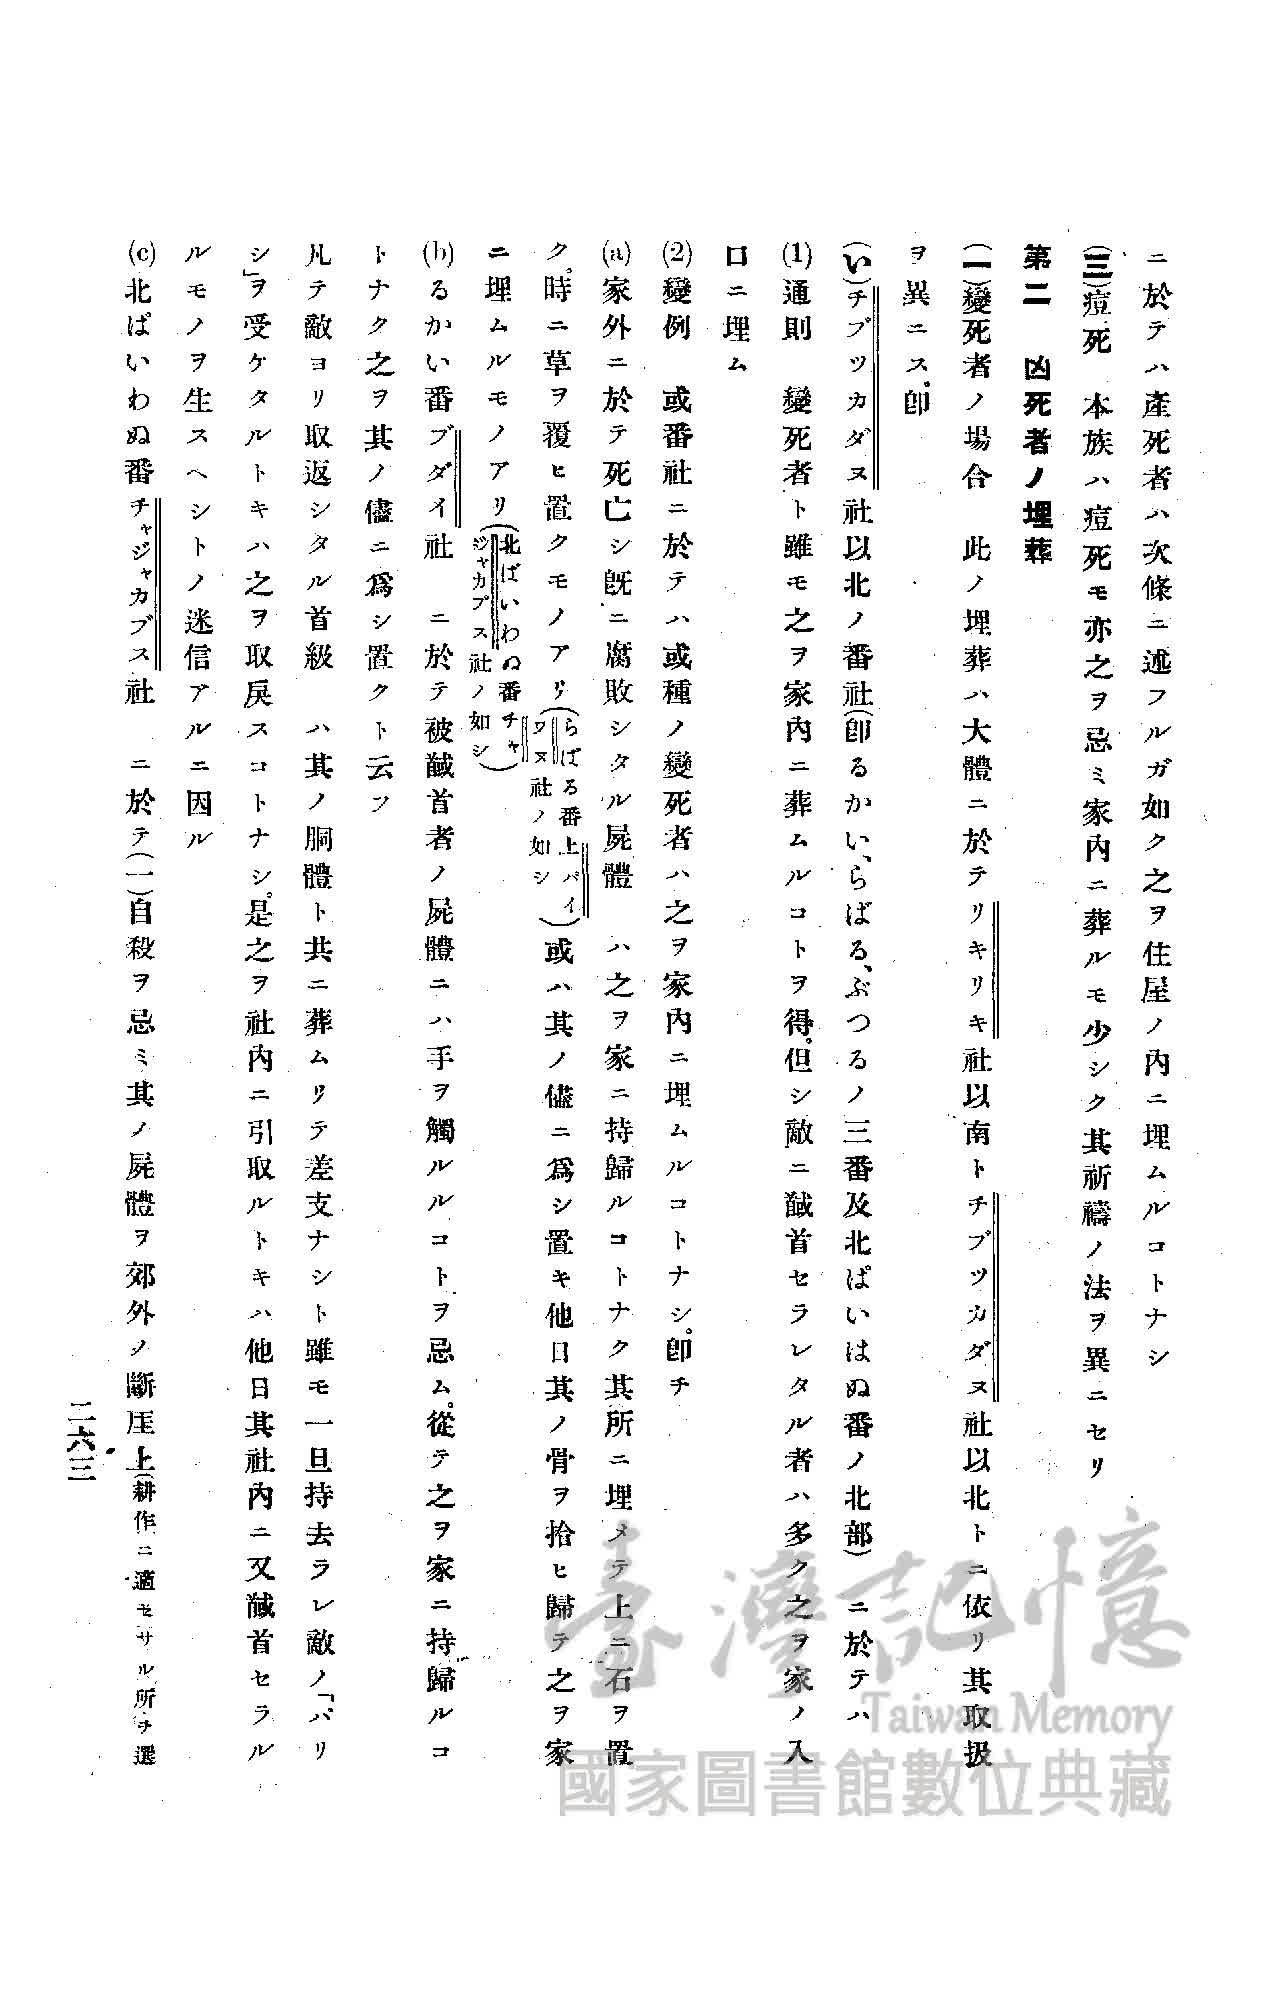 ニ於テハ產死者ハ次條ニ述フルガ如ク之ヲ住屋ノ內ニ埋ムルコトナシ
(三)痘死　本族ハ痘死モ亦之ヲ忌ミ家內ニ葬ルモ少シク其祈禱ノ法ヲ異ニセリ
第二　凶死者ノ埋葬
(一)變死者ノ場合　此ノ埋葬ハ大體ニ於テリキリキ社以南トチブツカダヌ社以北トニ依リ其取扱
ヲ異ニス。卽
(い)チブツカダヌ社以北ノ番社(卽るかい、らばる、ぶつるノ三番及北ぱいはぬ番ノ北部)ニ於テハ
(1)通則　變死者ト雖モ之ヲ家內ニ葬ムルコトヲ得。但シ敵ニ馘首セラレタル者ハ多ク之ヲ家ノ入
口ニ埋ム
(2)變例　或番社ニ於テハ或種ノ變死者ハ之ヲ家內ニ埋ムルコトナシ。卽チ
(a)家外ニ於テ死亡シ旣ニ腐敗シタル屍體　ハ之ヲ家ニ持歸ルコトナク其所ニ埋メテ上ニ石ヲ置
ク。時ニ草ヲ覆ヒ置クモノアリ(らばる番上パイワヌ社ノ如シ)或ハ其ノ儘ニ爲シ置キ他日其ノ骨ヲ拾ヒ歸テ之ヲ家
ニ埋ムルモノアリ(北ぱいわぬ番チャジャカプス社ノ如シ)
(b)るかい番ブダイ社　ニ於テ被馘首者ノ屍體ニハ手ヲ觸ルルコトヲ忌ム。從テ之ヲ家ニ持歸ルコ
トナク之ヲ其ノ儘ニ爲シ置クト云フ
凡テ敵ヨリ取返シタル首級　ハ其ノ胴體ト共ニ葬ムリテ差支ナシト雖モ一旦持去ラレ敵ノ「パリ
シ」ヲ受ケタルトキハ之ヲ取戾スコトナシ。是之ヲ社內ニ引取ルトキハ他日其社內ニ又馘首セラル
ルモノヲ生スヘシトノ迷信アルニ因ル
(c)北ぱいわぬ番チャジャカブス社　ニ於テ(一)自殺ヲ忌ミ其ノ屍體ヲ郊外ノ斷厓上(耕作ニ適セサル所ヲ選
二六三
臺灣記憶
Taiwan Memory
國家圖書館數位典藏